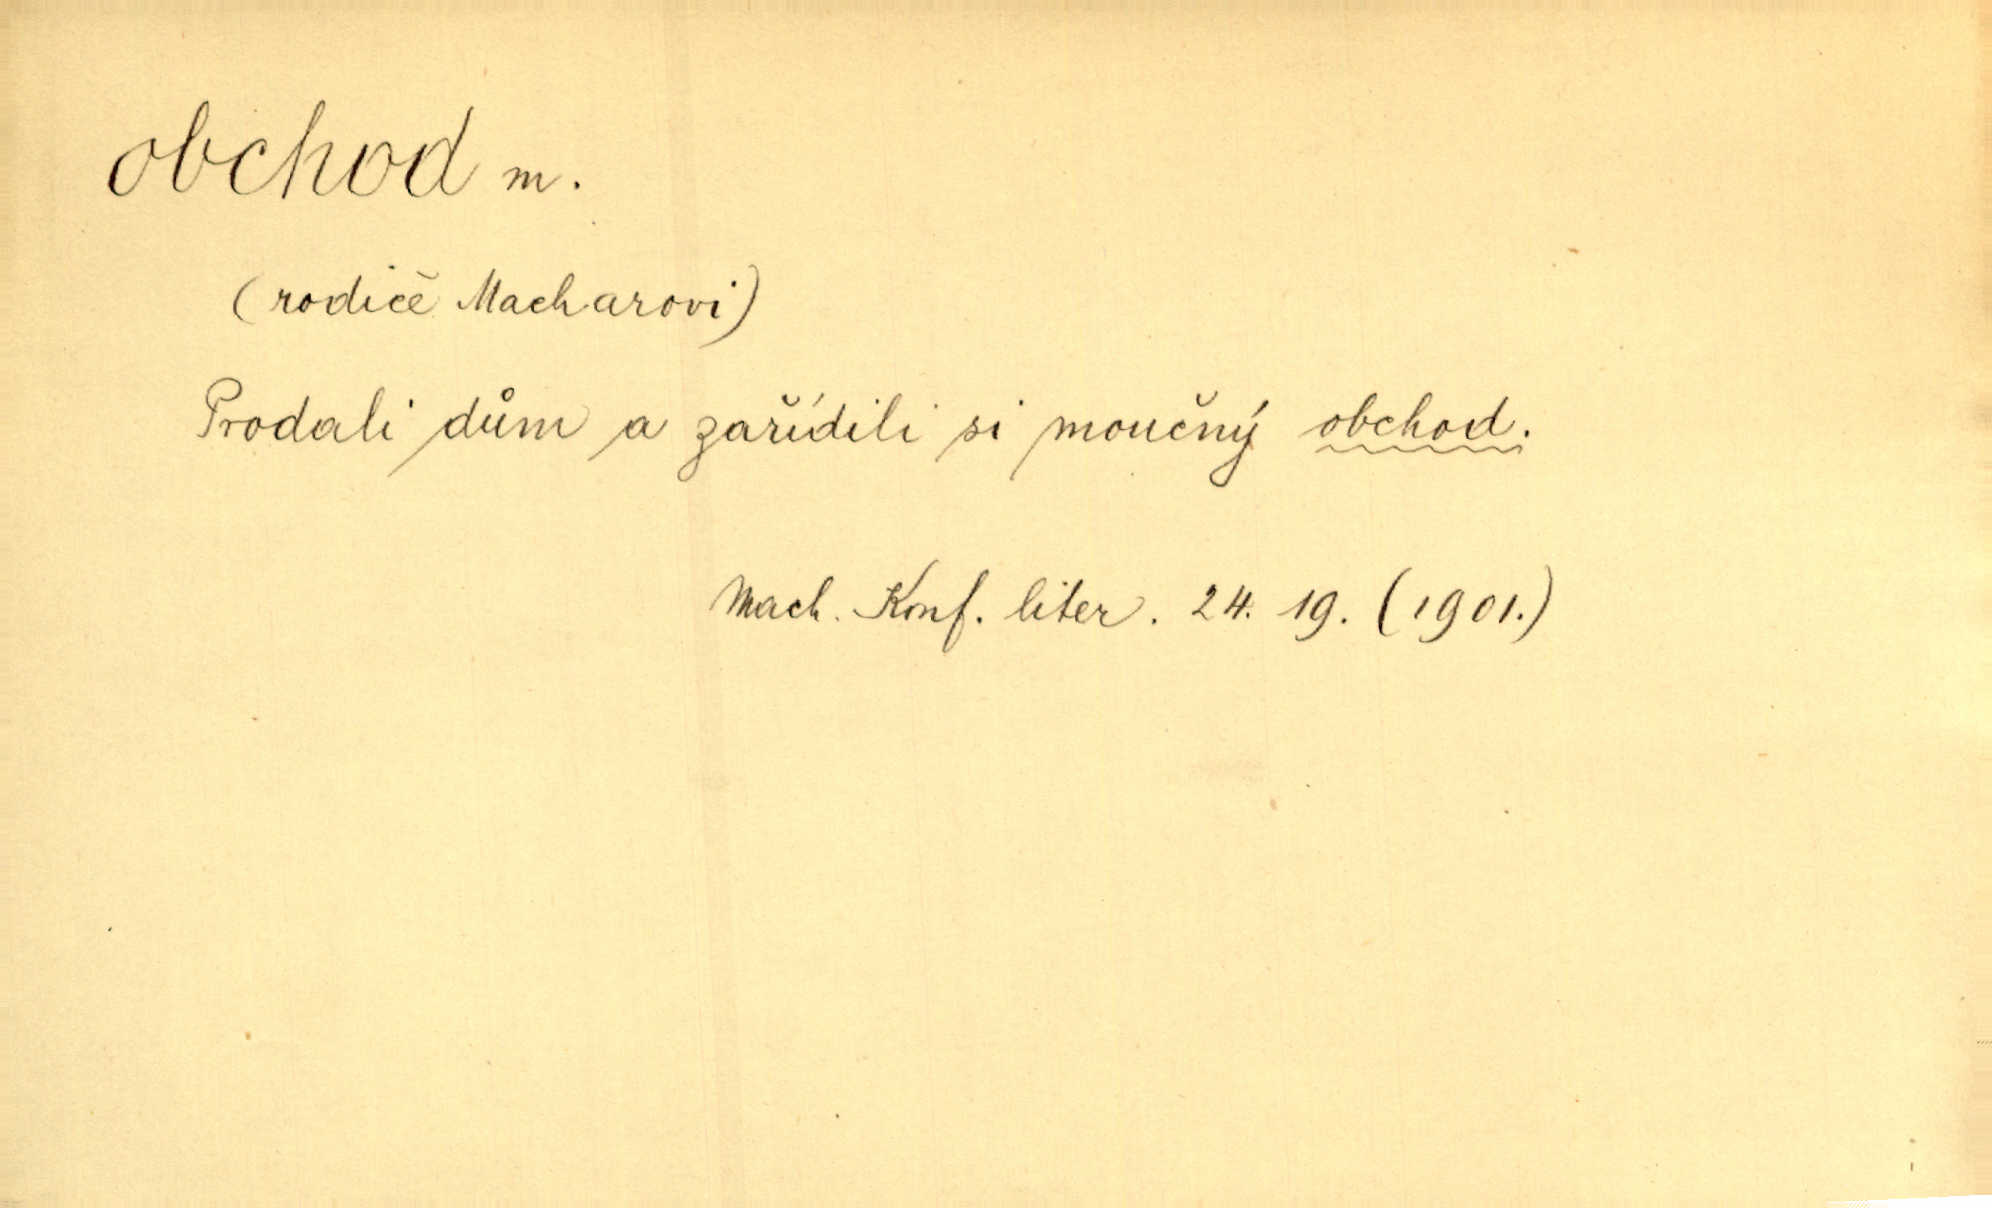 obchod m.
(rodiče Macharovi)
Prodali dům a zařídili si moučný obchod.
Mach. Konf. liter. 24. 19. (1901.)